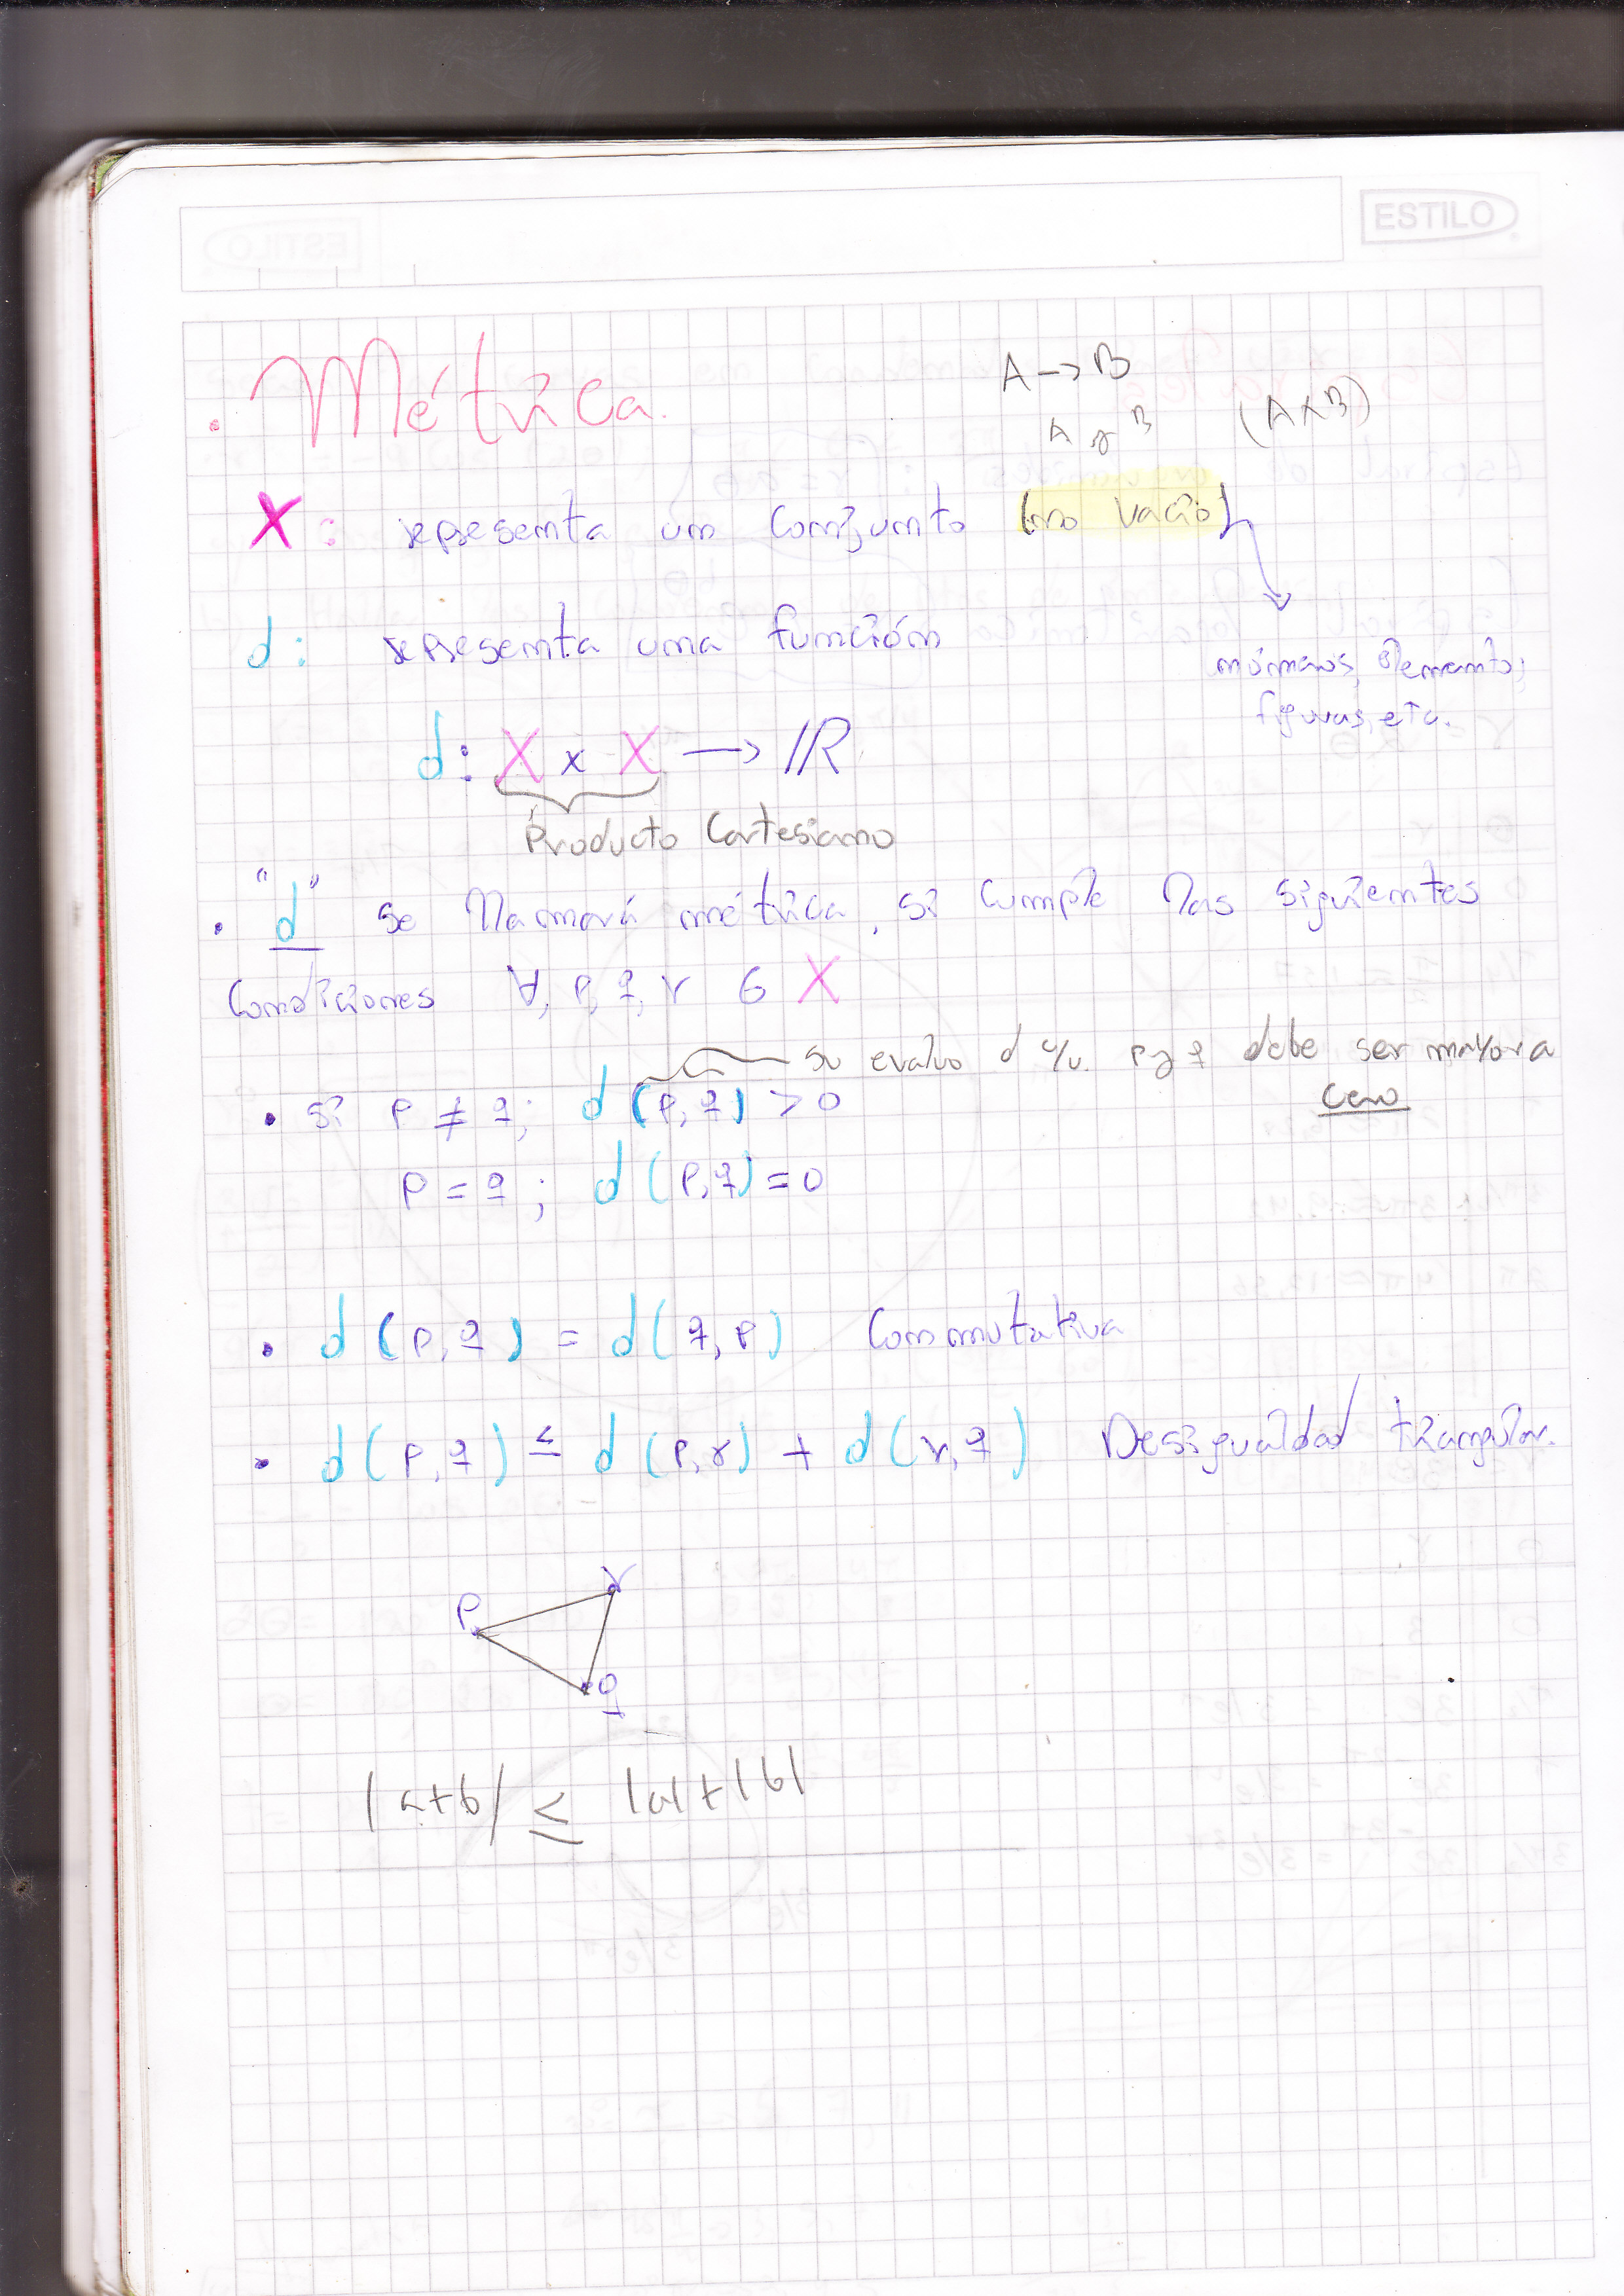 ESTILO
. Métrica.
A → B
A y B (A x B)
X: representa un conjunto (no vacio)
d: representa una función
números, elementos,
figuras, etc.
d: X x X → ℝ
Producto Cartesiano
. "d" se llamará métrica, si cumple las siguientes
Condiciones ∀, p, q, r ∈ X
su evaluo d c/u. p y q debe ser mayor a
cero
• si p ≠ q; d (p, q) > 0
p = q ; d (p, q) = 0
• d (p, q) = d (q, p) Conmutativa
• d (p, q) ≤ d (p, r) + d (r, q) Desigualdad triangular.
r
p
q
|a+b| ≤ |a|+|b|